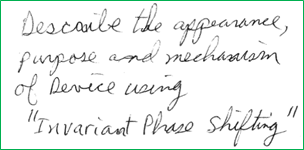 Describe the appearance,
purpose and mechanism
of Device using
"Invariant Phase Shifting"